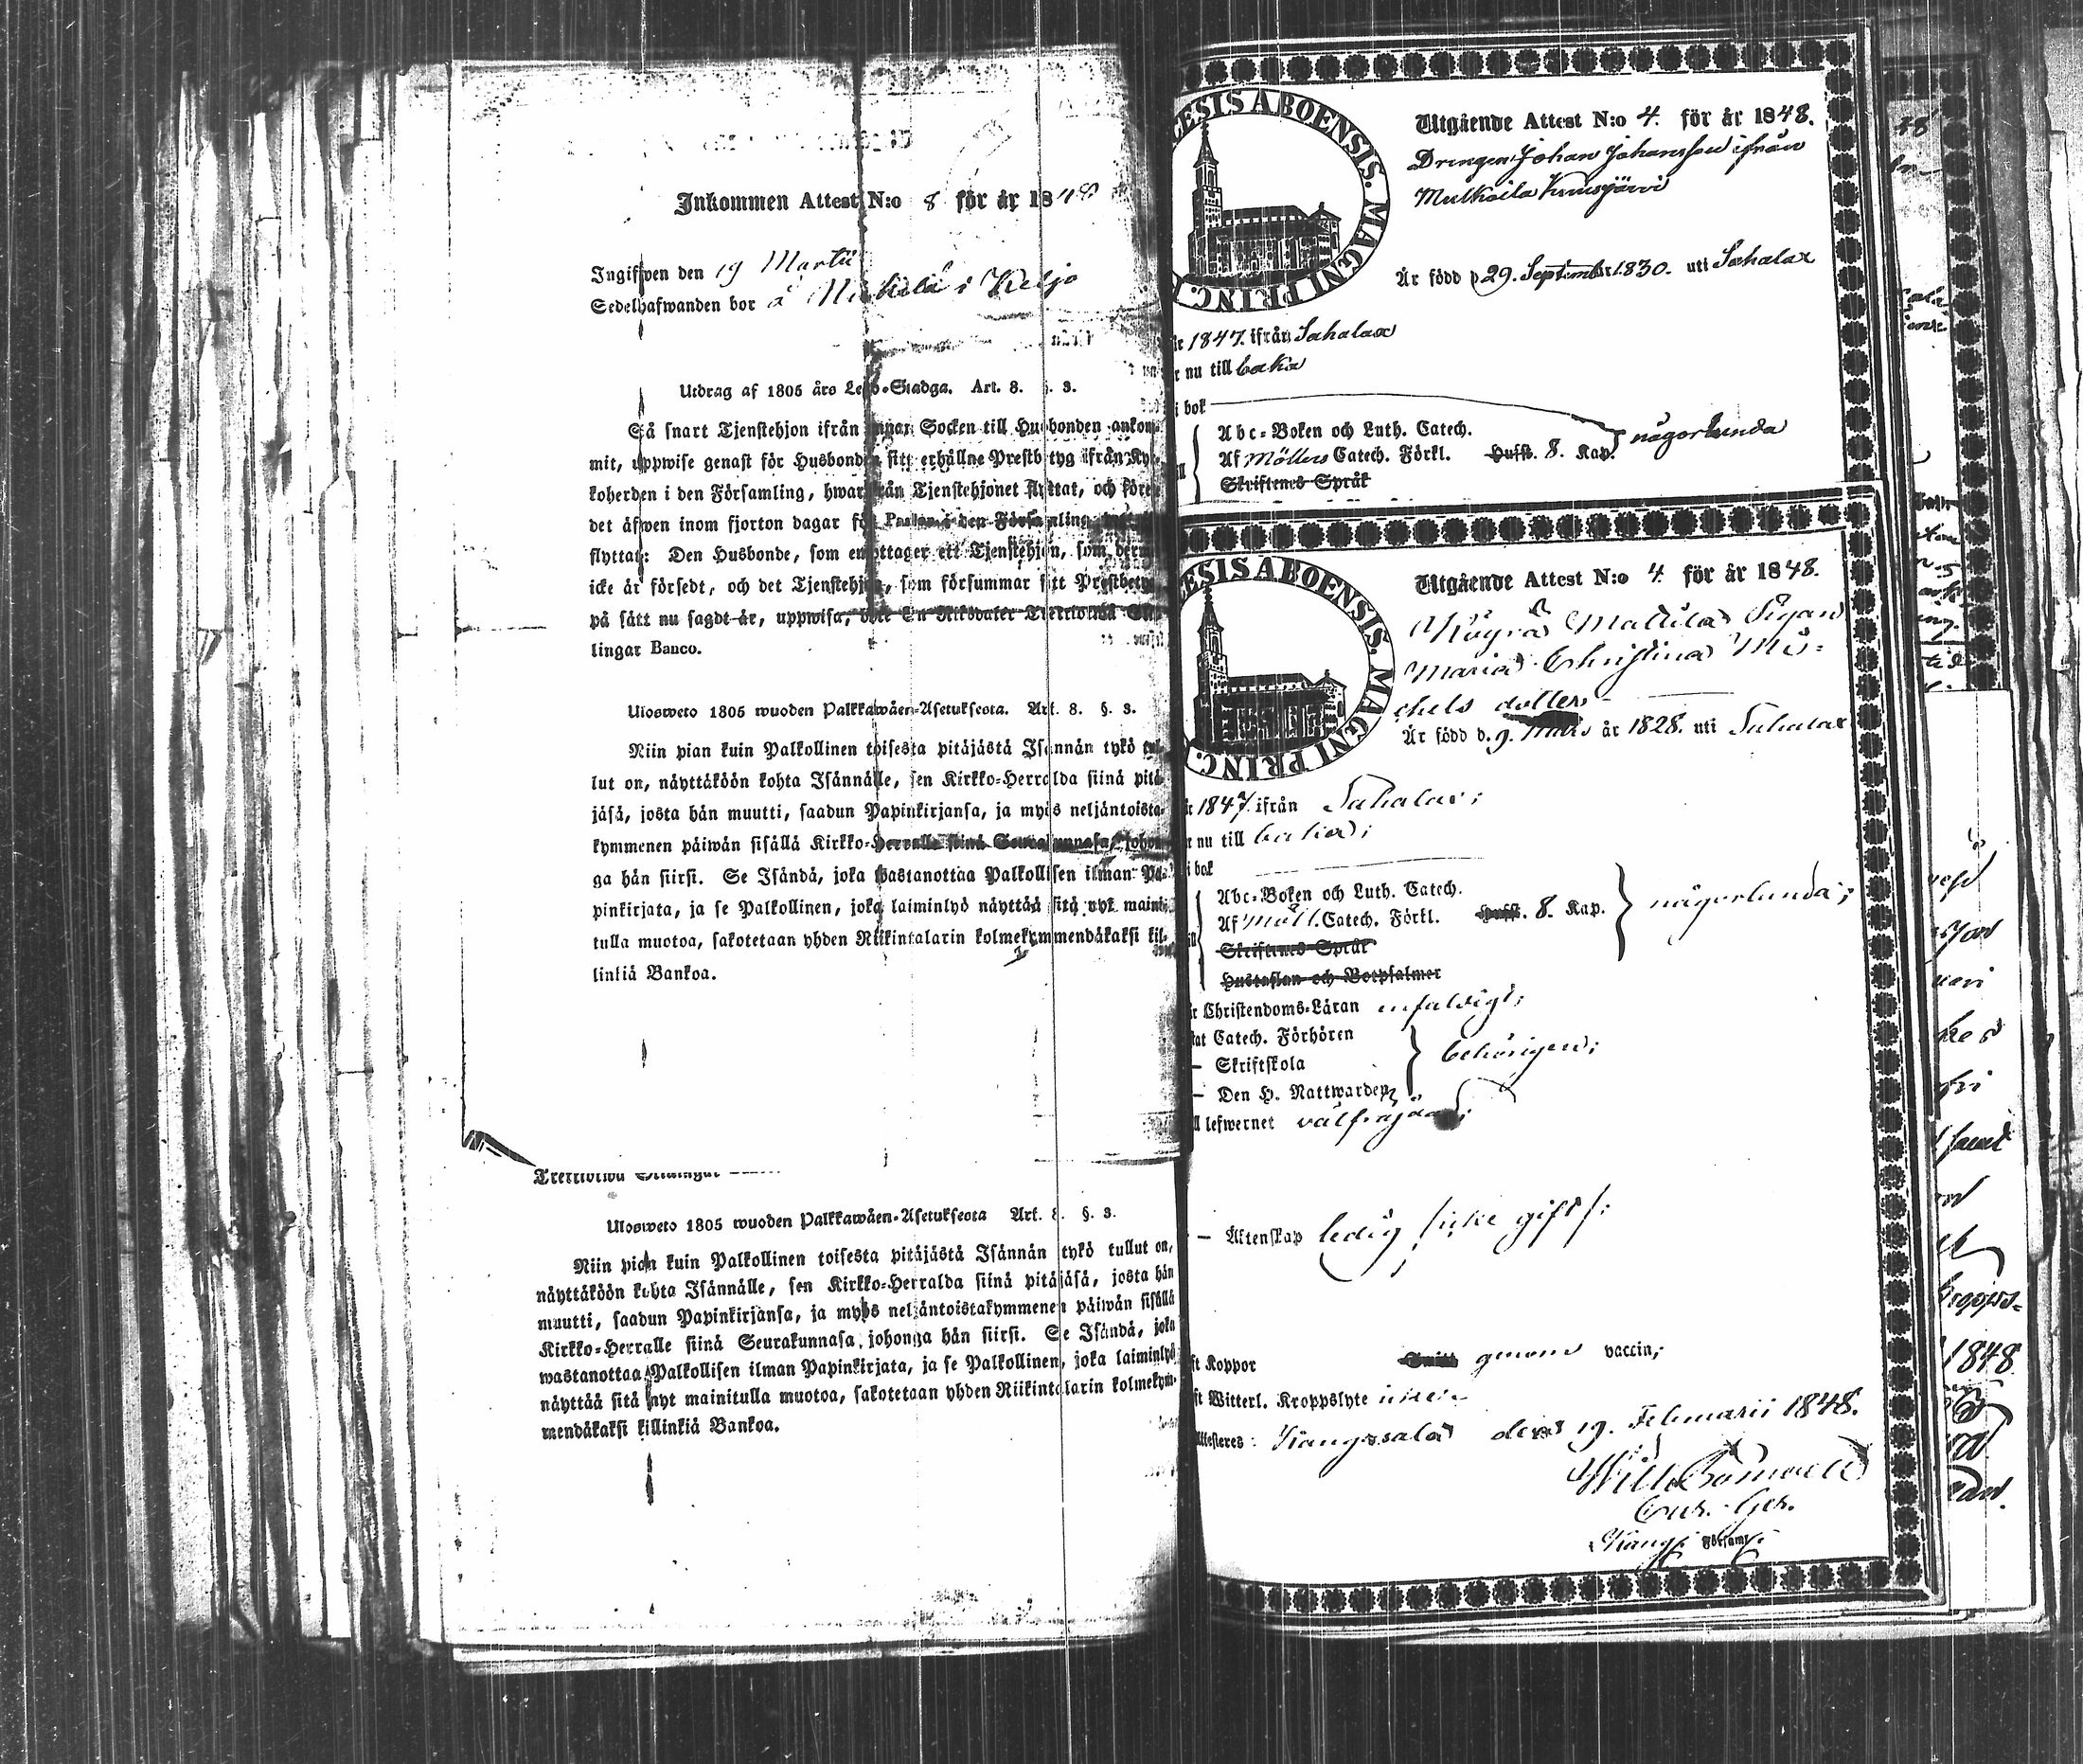 Inkommen Attest N:o 8 för år 1848
Ingifwen den 19 Martii
Sedelhafwanden bor å i Keljo
Utdrag af 1805 års Lego-Stadga. Art. 8. §. 3.
Så snart Tjenstehjon ifrån annan Socken till Husbonden ankom-
mit, uppwise genast för Husbonden sitt erhållne Prestbetyg ifrån Kyr-
koherden i den Församling, hwarifrån Tjenstehjonet flyttat, och före
det äfwen inom fjorton dagar för Pastor i den Församling
flyttat: Den Husbonde, som emottager ett Tjenstehjon, som dermed
icke är försedt, och det Tjenstehjon, som försummar sitt Prestbetyg
på sätt nu sagdt är, uppwisa, böte En Riksdaler Trettiotwå Skil-
lingar Banco.
Ulosweto 1805 wuoden Palkkawäen-Asetuksesta. Art. 8. §. 3.
Niin pian kuin Palkollinen toisesta pitäjästä Isännän tykö tul-
lut on, näyttäköön kohta Isännälle, sen Kirkko-Herralda siinä pitä-
jäsä, josta hän muutti, saadun Papinkirjansa, ja myös neljäntoista-
kymmenen päiwän sisällä Kirkko-Herralle siinä Seurakunnasa, johon-
ga hän siirsi. Se Isändä, joka wastanottaa Palkollisen ilman Pa-
pinkirjata, ja se Palkollinen, joka laiminlyö näyttää sitä nyt maini-
tulla muotoa, sakotetaan yhden Riikintalarin kolmekymmendäkaksi kil-
linkiä Bankoa.
Trettiotwå Skillingar
Ulosweto 1805 wuoden Palkkawäen-Asetuksesta Art. 8. §. 3.
Niin pian kuin Palkollinen toisesta pitäjästä Isännän tykö tullut on,
näyttäköön kohta Isännälle, sen Kirkko-Herralda siinä pitäjäsä, josta hän
muutti, saadun Papinkirjansa, ja myös neljäntoistakymmenen päiwän sisällä
Kirkko-Herralle siinä Seurakunnasa, johonga hän siirsi. Se Isändä, joka
wastanottaa Palkollisen ilman Papinkirjata, ja se Palkollinen, joka laiminlyö
näyttää sitä nyt mainitulla muotoa, sakotetaan yhden Riikintalarin kolmekym-
mendäkaksi killinkiä Bankoa.
ESIS ABOENSIS. MAGNI PRINC.
Utgående Attest N:o 4. för år 1848.
Drengen Johan Johansson ifrån
Mulkoila Kuusjärvi
Är född d 29. Septemb år 1830. uti Sahalax
år 1847. ifrån Sahalax
r nu till baka
i bok
Abc-Boken och Luth. Catech.
Af Möllers Catech. Förkl. Hufst. 8. Kap. någorlunda
Skriftenes Språk
LESIS ABOENSIS. MAGNI PRINC.
Utgående Attest N:o 4 för år 1848.
Mattila Pigan
Maria Christina Mi-
chels dotter
Är född d. 9. Mars år 1828. uti Sahalax
år 1847. ifrån Sahalax;
r nu till baka;
i bok
Abc-Boken och Luth. Catech.
Af Möll. Catech. Förkl. Hufst. 8. Kap. någorlunda;
Skriftenes Språk
Hustaflan och Botpsalmer
r Christendoms-Läran enfaldigt;
tat Catech. Förhören
— Skriftskola behörigen;
— Den H. Nattwarden
ll lefwernet välfräjdad;
— Äktenskap ledig /: icke gift :/
ft Koppor genom vaccin;
ft Witterl. Kroppslyte
Attesteres: Kangasala den 19. Februarii 1848.
Kang. Församl.